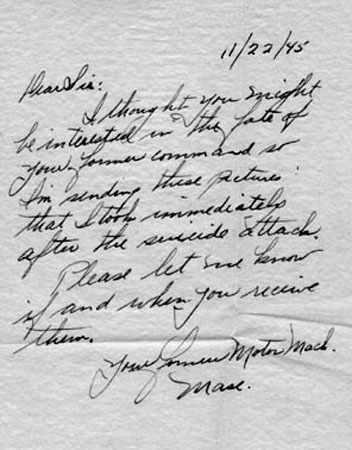 11/22/45
Dear Sir:
I thought you might
be interested in the fate of
your former command so
I'm sending these pictures
that I took immediately
after the suicide attack.
Please let me know
if and when you receive
them.
Your former Motor Mach.
Mase.